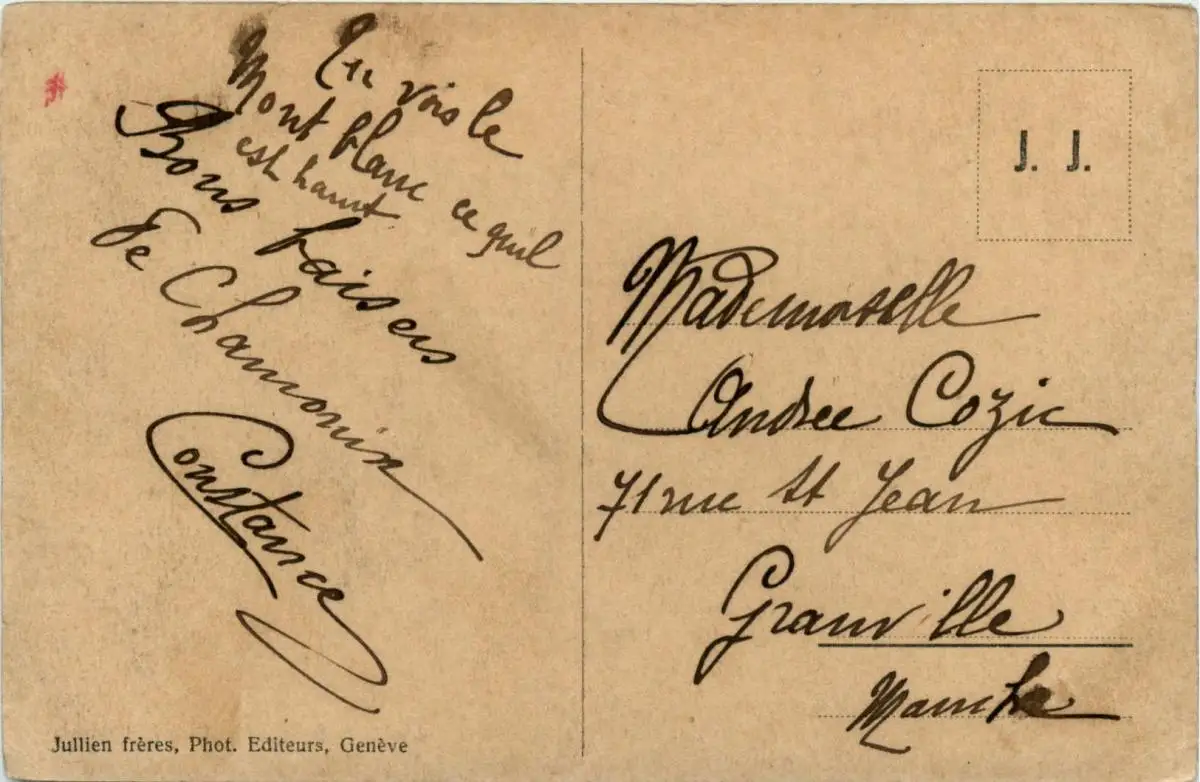 Tu vois le
Mont blanc ce quil
est haut
Bons baisers
de Chamonix
Constance
Jullien frères, Phot. Editeurs, Genève
J. J.
Mademoiselle
Andree Cozic
71 rue St Jean
Granville
Manche